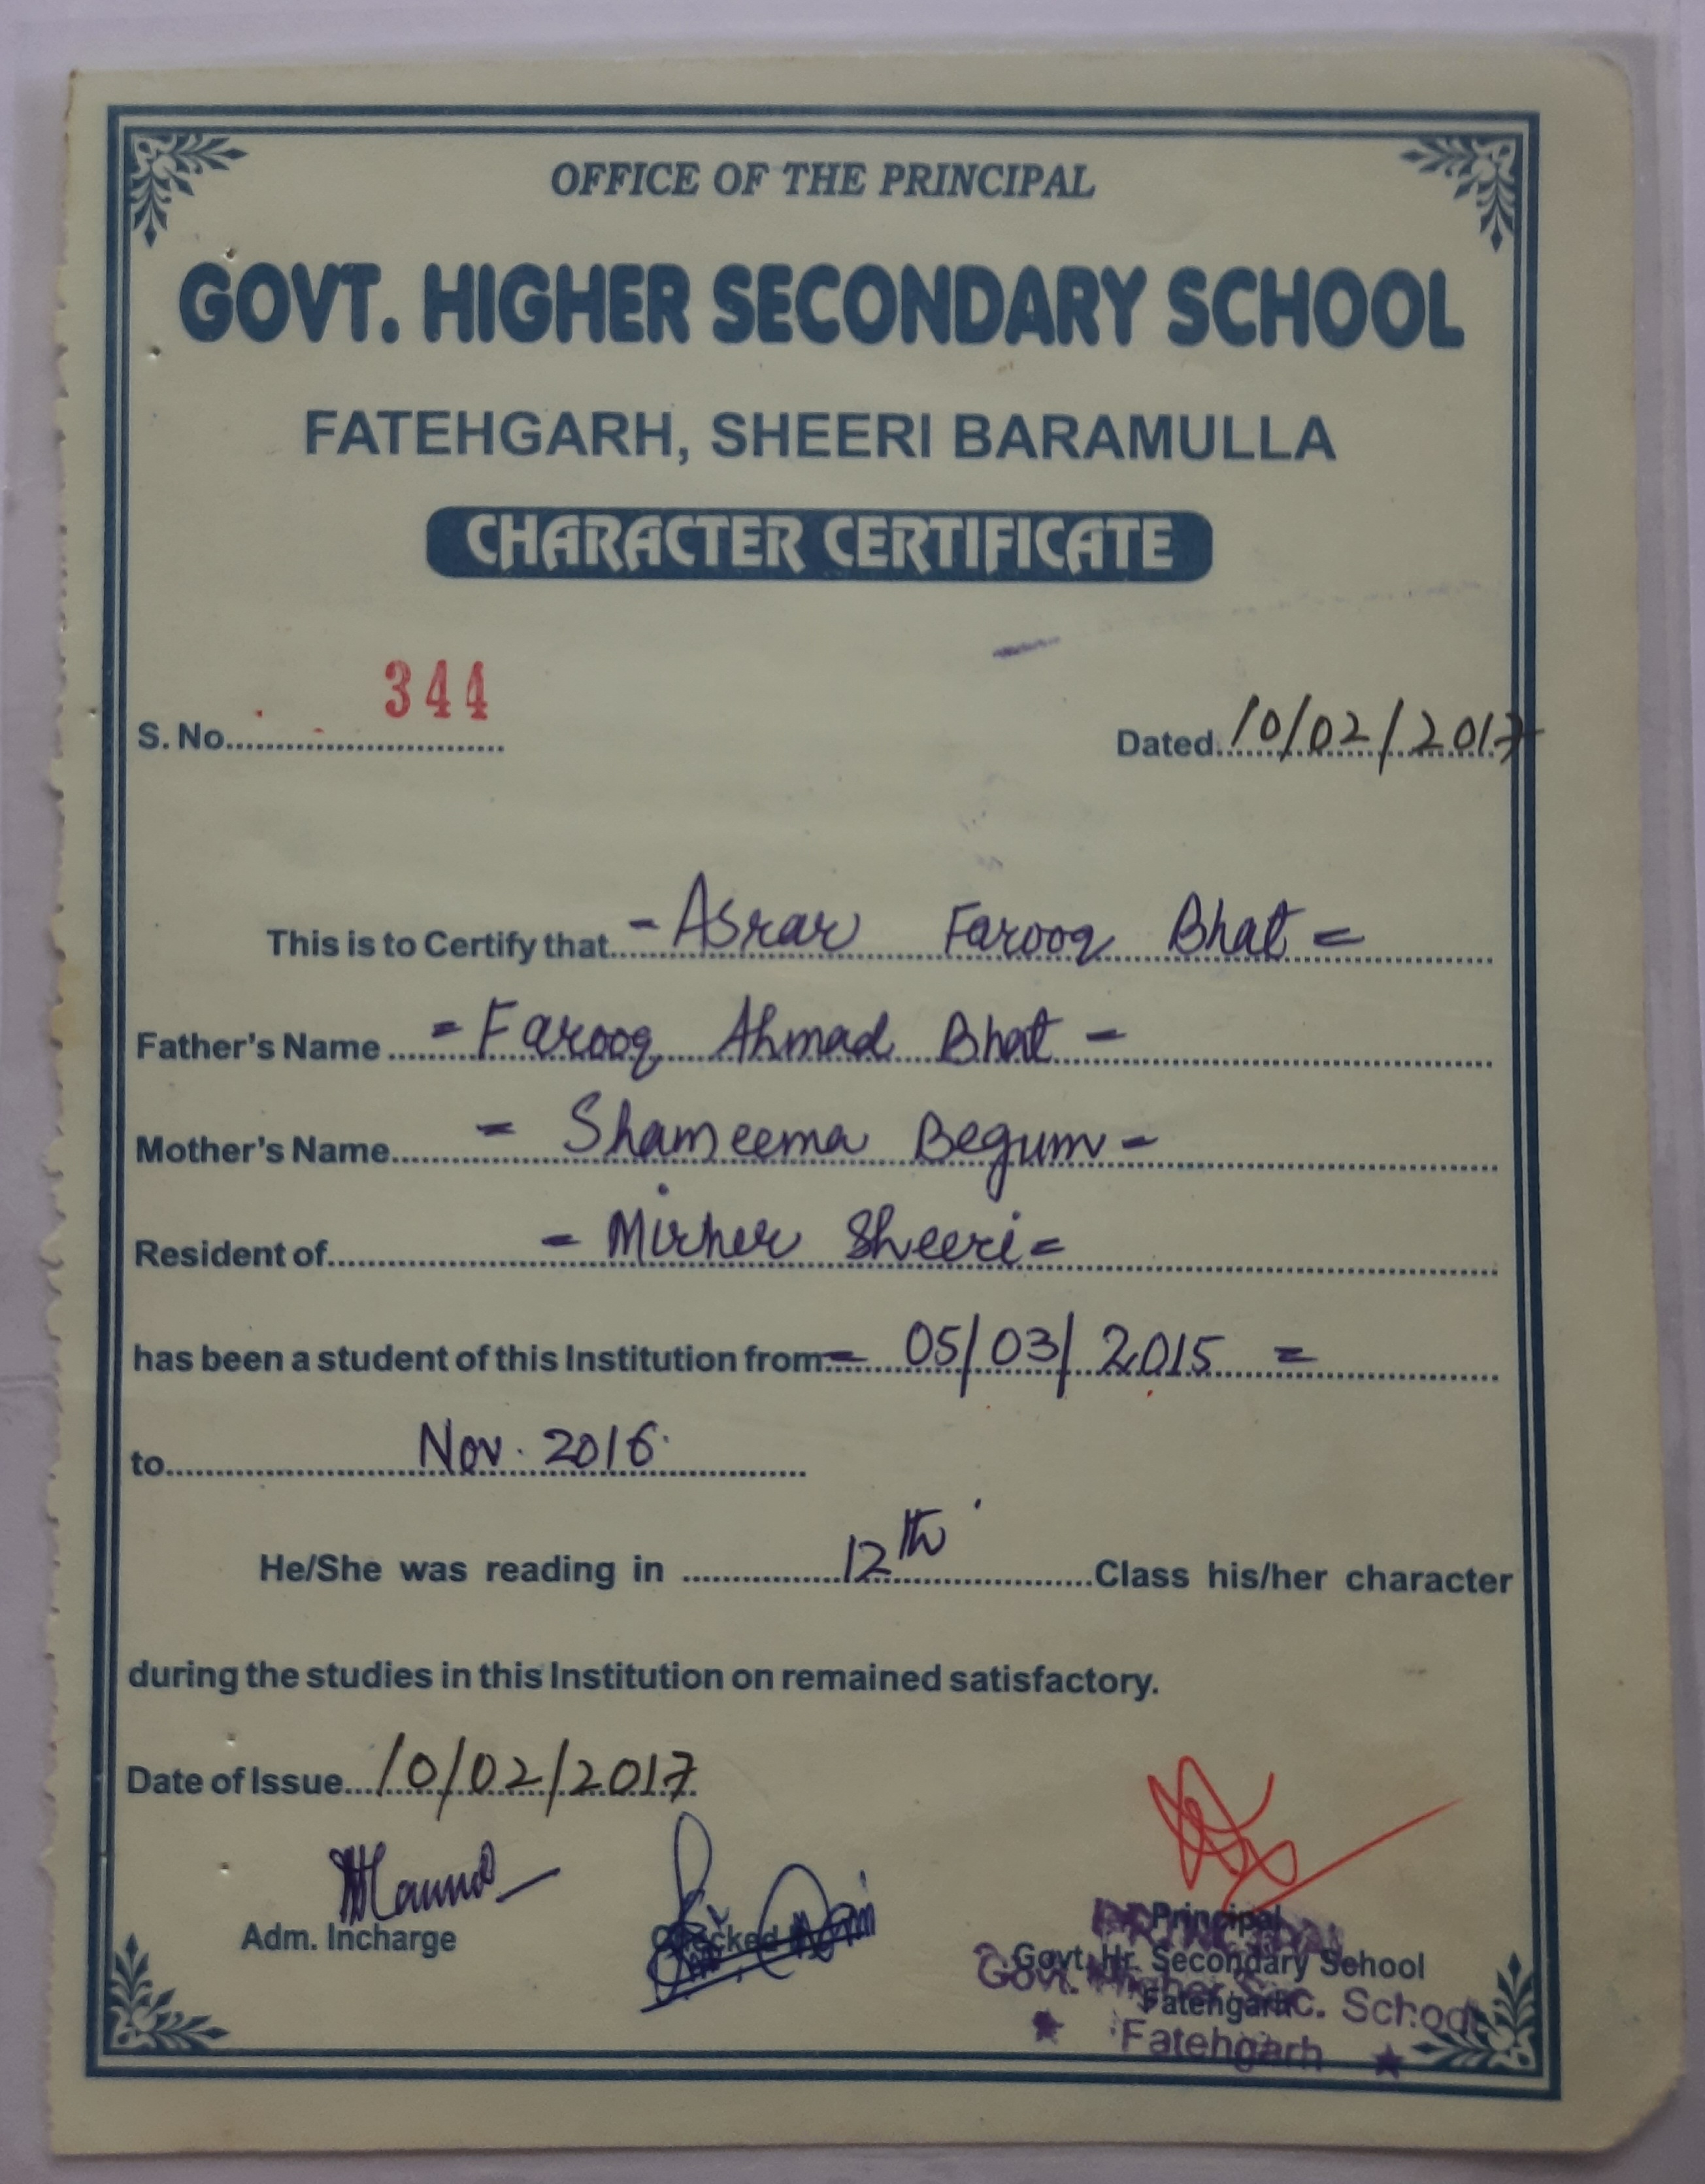 OFFICE OF THE PRINCIPAL
GOVT. HIGHER SECONDARY SCHOOL
FATEHGARH, SHEERI BARAMULLA
CHARACTER CERTIFICATE
S. No. 344 Dated 10/02/2017
This is to Certify that - Asrar Farooq Bhat =
Father's Name = Farooq Ahmad Bhat -
Mother's Name - Shameema Begum -
Resident of - Mirher Sheeri =
has been a student of this Institution from = 05/03/2015 =
to Nov. 2016.
He/She was reading in 12th Class his/her character
during the studies in this Institution on remained satisfactory.
Date of Issue 10/02/2017
Adm. Incharge
Principal
Govt. Hr. Secondary School
Fatehgarh
PRINCIPAL
Govt. Higher Sec. School
Fatehgarh